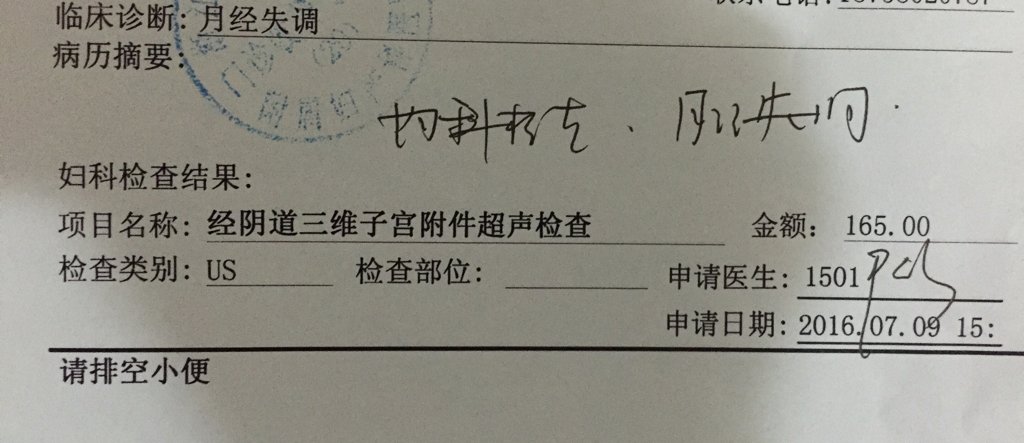 临床诊断: 月经失调
病历摘要:
妇科检查、月经失调.
妇科检查结果:
项目名称: 经阴道三维子宫附件超声检查 金额: 165.00
检查类别: US 检查部位:
申请医生: 1501
申请日期: 2016.07.09 15:
请排空小便